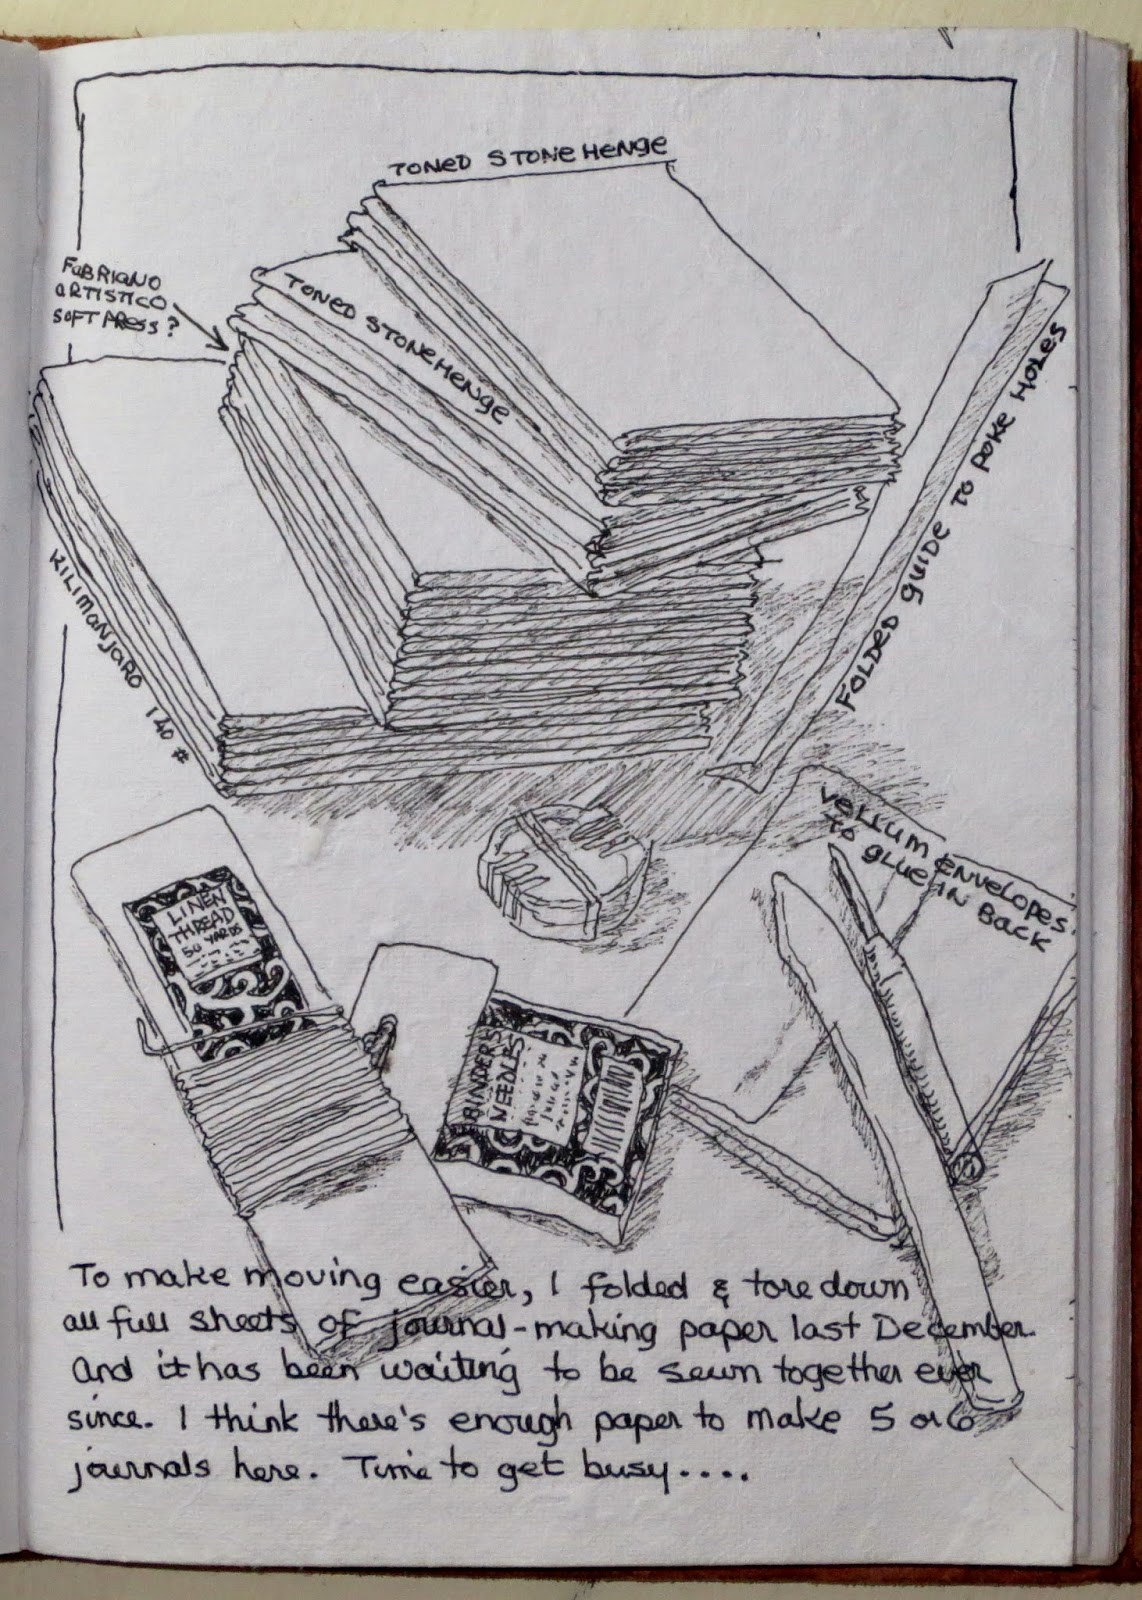 TONED STONEHENGE
FABRIANO
ARTISTICO
SOFT PRESS?
TONED STONEHENGE
FOLDED GUIDE TO POKE HOLES
KILIMANJARO 140#
VELLUM ENVELOPES
TO GLUE IN BACK
LINEN
THREAD
50 YARDS
BINDER'S
NEEDLES
To make moving easier, I folded & tore down
all full sheets of journal-making paper last December.
And it has been waiting to be sewn together ever
since. I think there's enough paper to make 5 or 6
journals here. Time to get busy....